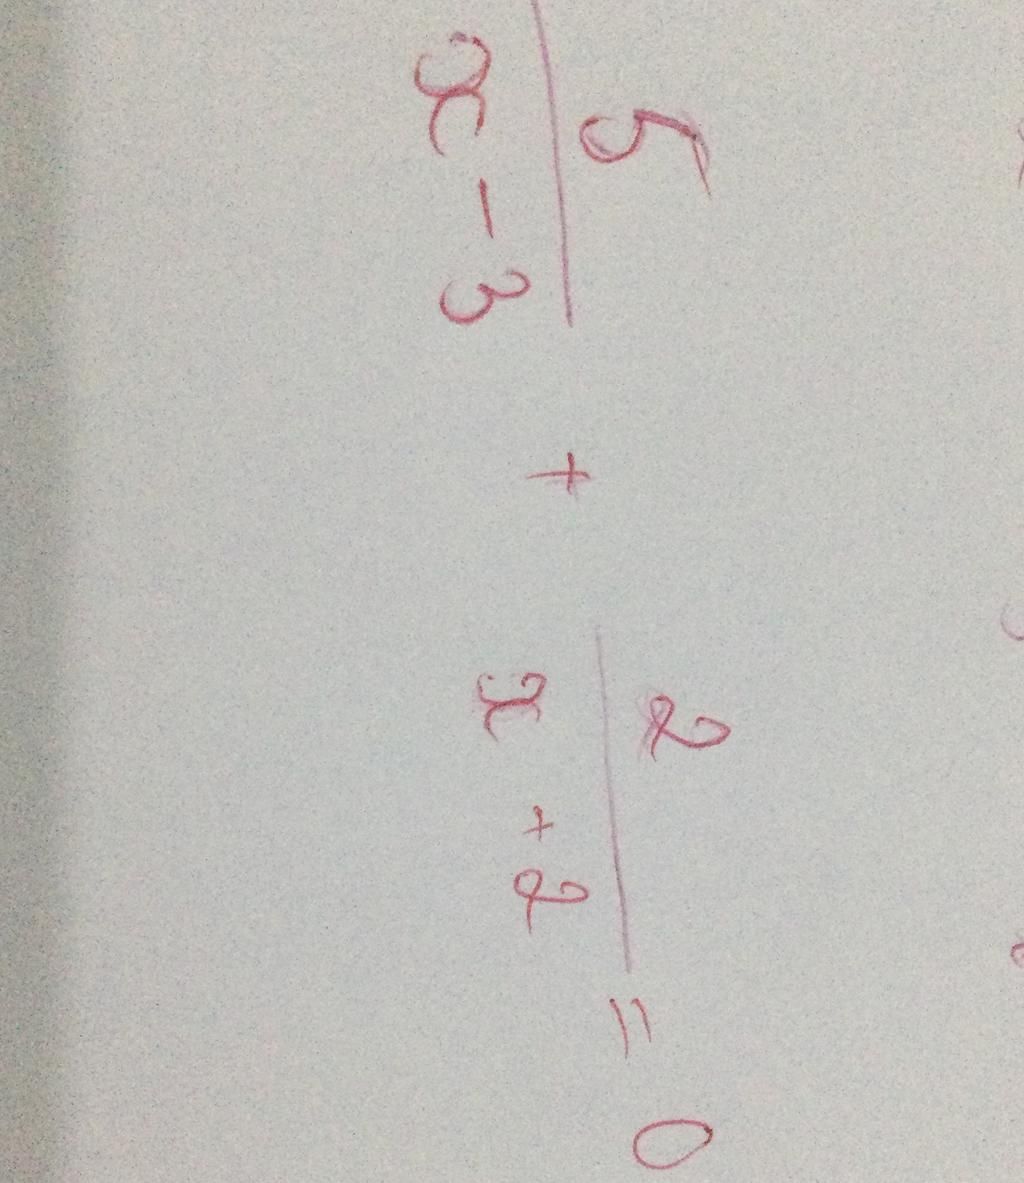 5/(x - 3) + 2/(x + 2) = 0